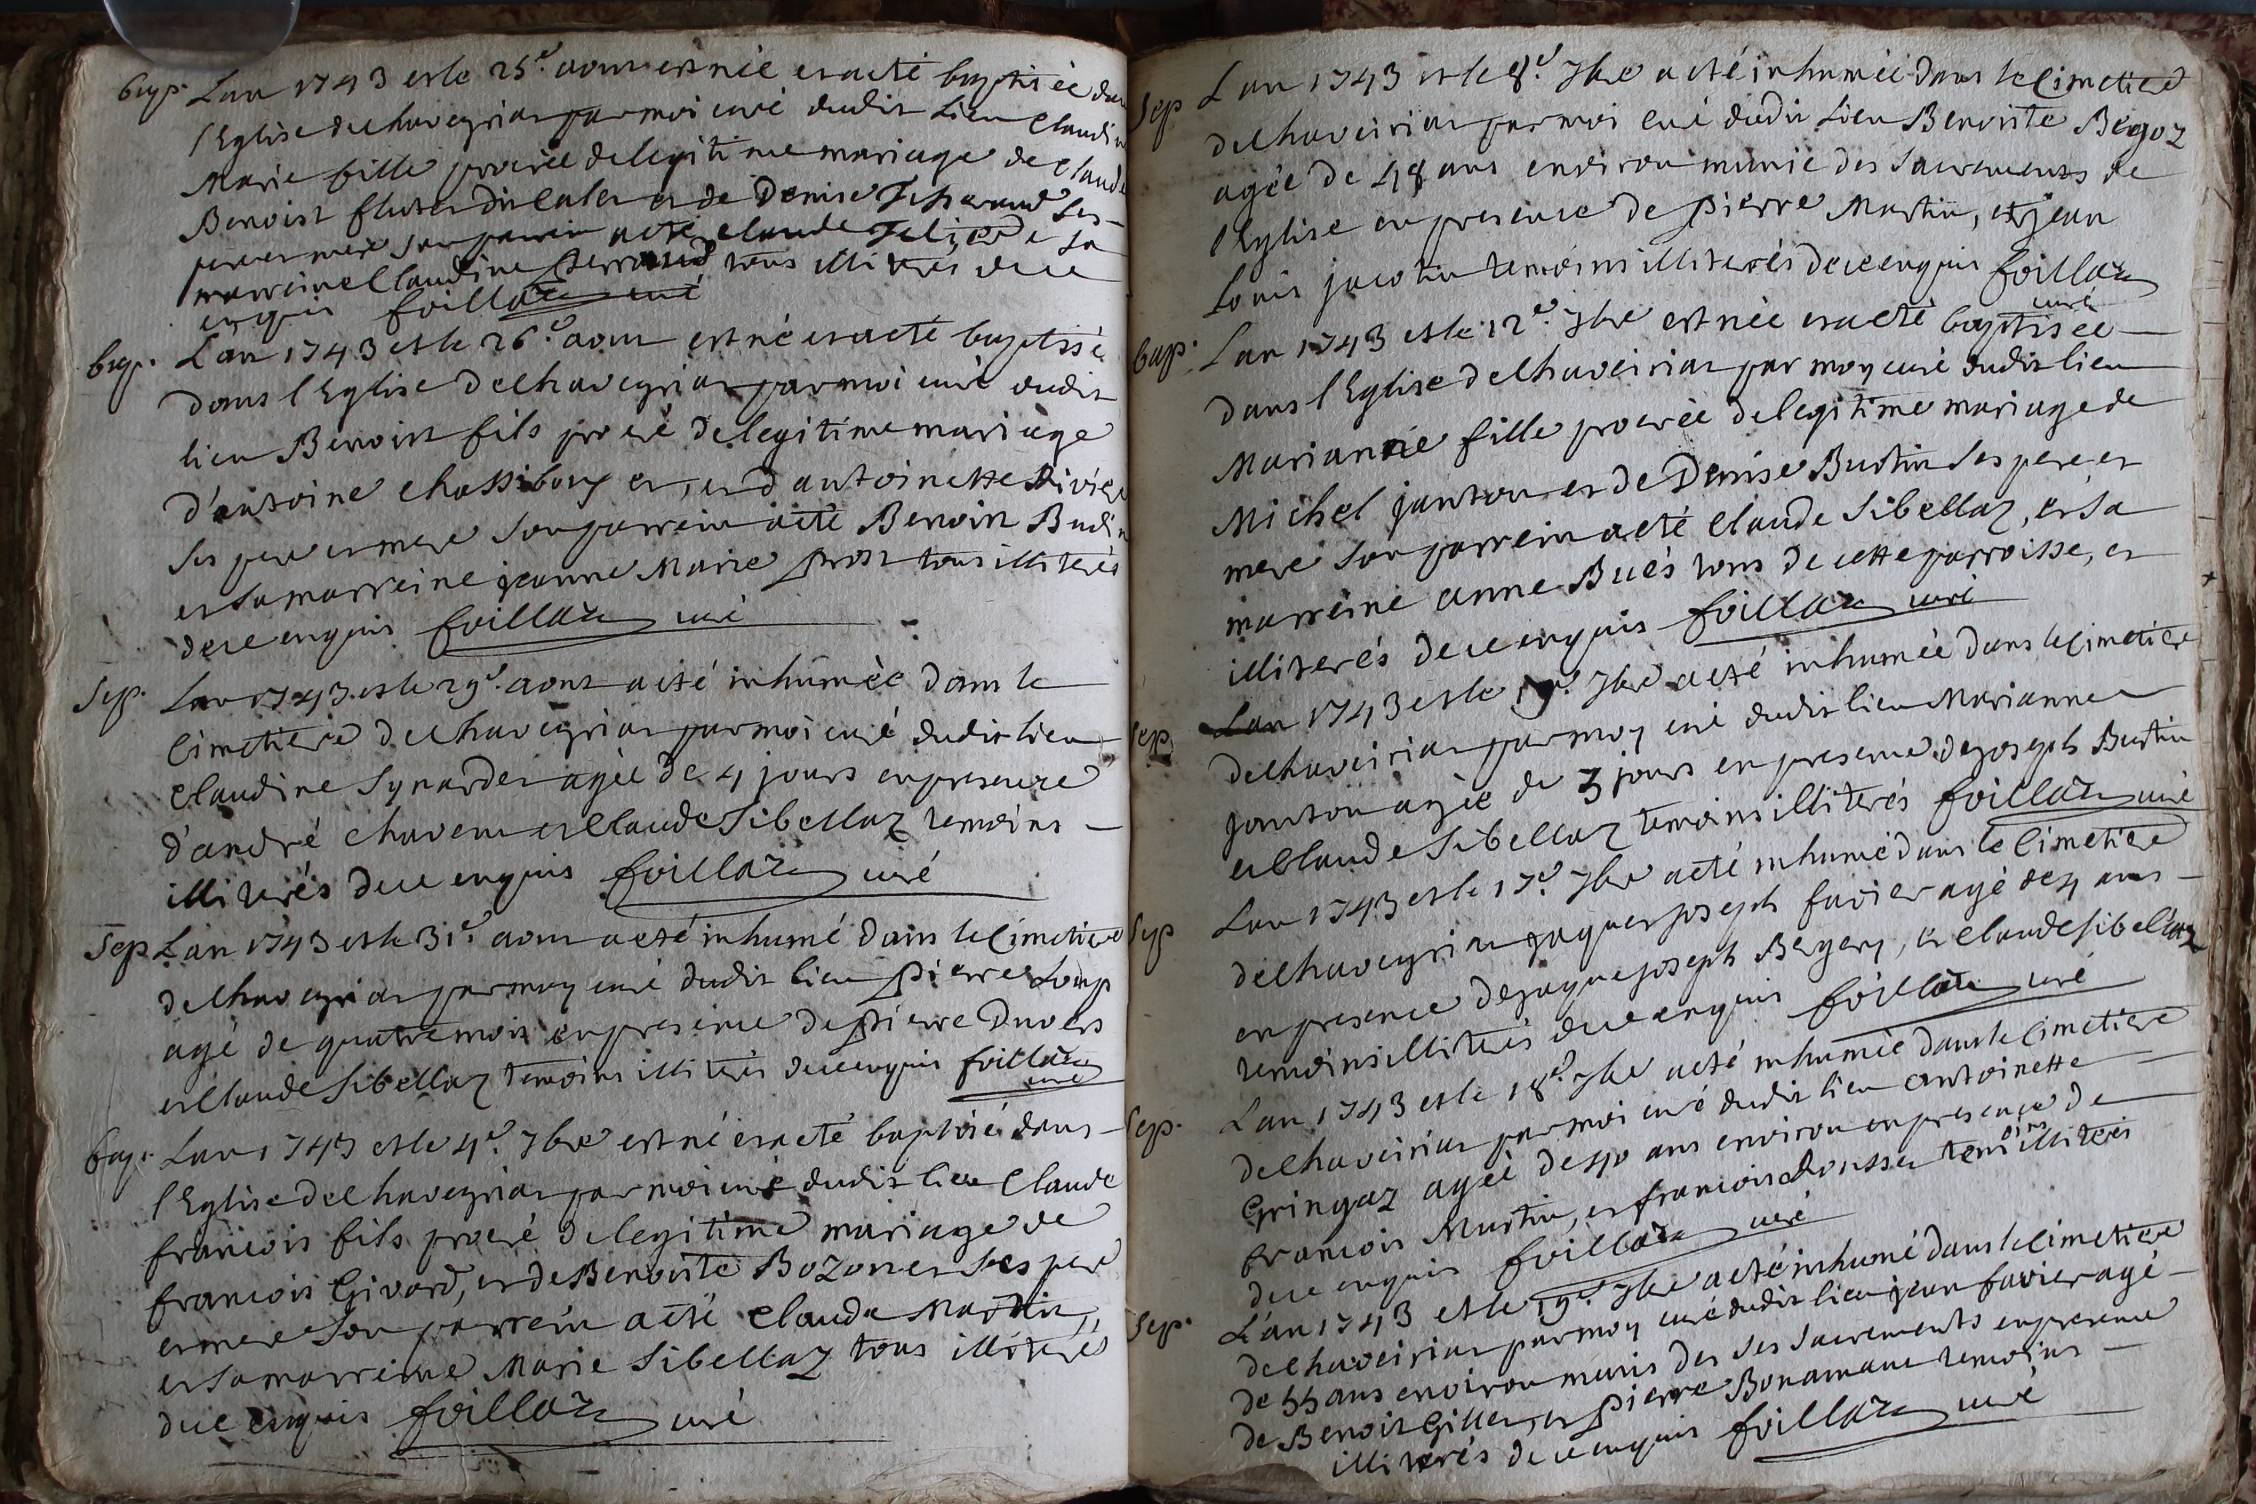 bap. Lan 1743 et le 25e. aout est née et a eté baptisée dans
l'Eglise de chaveyriat par moi curé dudit Lieu Claudine
Marie fille procréé de legitime mariage de claude
Benoist et de Denise ses
pere et mere son parrein a eté claude et sa
marreine Claudine tous illiterés de ce
enquis foillaz curé
bap. Lan 1743 et le 26e. aout est né et a eté baptisé
dans l'Eglise de chaveyriat par moi curé dudit
lieu Benoist fils procréé de legitime mariage
d'antoine et, et d'antoinette Rivier
ses pere et mere son parrein a eté Benoist Budin
et sa marreine jeanne Marie prost tous illiterés
de ce enquis foillaz curé
Sep. Lan 1743 et le 29e. aout a eté inhumée dans le
Cimetiere de chaveyriat par moi curé dudit lieu
Claudine agée de 4 jours en presence
d'andré chavent et Claude Sibellaz temoins
illiterés de ce enquis foillaz curé
Sep Lan 1743 et le 31e. aout a eté inhumé dans le Cimetiere
de chaveyriat par moy curé dudit lieu pierre Loup
agé de quatre mois en presence de pierre Duvers
et Claude Sibellaz temoins illiterés de ce enquis foillaz
curé
bap. Lan 1743 et le 4e. 7bre est né et a eté baptisé dans
l'Eglise de chaveyriat par moi curé dudit lieu Claude
francois fils procréé de legitime mariage de
francois Givord, et de Benoiste Bozonet ses pere
et mere son parrein a eté Claude Martin,
et sa marreine Marie Sibellaz tous illiterés
de ce enquis foillaz curé
Sep Lan 1743 et le 8e. 7bre a eté inhumée dans le Cimetiere
de chaveiriat par moi curé dudit Lieu Benoiste Begoz
agée de 48 ans environ munie des sacrements de
l'Eglise en presence de pierre Martin, et jean
Louis jacotin temoins illiterés de ce enquis foillaz
curé
bap. Lan 1743 et le 12e. 7bre est née et a eté baptisée
dans l'Eglise de chaveiriat par moy curé dudit lieu
Marianne fille procréée de legitime mariage de
Michel janton et de Denise Burtin ses pere et
mere son parrein a eté claude Sibellaz, et sa
marreine anne Bués tous de cette parroisse, et
illiterés de ce enquis foillaz curé
Sep. Lan 1743 et le 7bre a eté inhumée dans le Cimetiere
de chaveiriat par moy curé dudit lieu Marianne
janton agée de 3 jours en presence de joseph Burtin
et Claude Sibellaz temoins illiterés foillaz curé
Sep Lan 1743 et le 17e. 7bre a eté inhumé dans le Cimetiere
de chaveyriat jaques joseph favier agé de 4 ans
en presence de jaque joseph Bergery, et Claude Sibellaz
temoins illiterés de ce enquis foillaz curé
Sep. Lan 1743 et le 18e. 7bre a eté inhumée dans le Cimetiere
de chaveiriat par moi curé dudit lieu antoinette
Gringaz agée de 40 ans environ en presence de
francois Martin, et francois Rousset temoins illiterés
de ce enquis foillaz curé
Sep. L'an 1743 et le 19e. 7bre a eté inhumé dans le Cimetiere
de chaveiriat par moy curé dudit lieu jean favier agé
de 55 ans environ munis des ses sacrements en presence
de Benoit Gillet, et pierre Bonamant temoins
illiterés de ce enquis foillaz curé